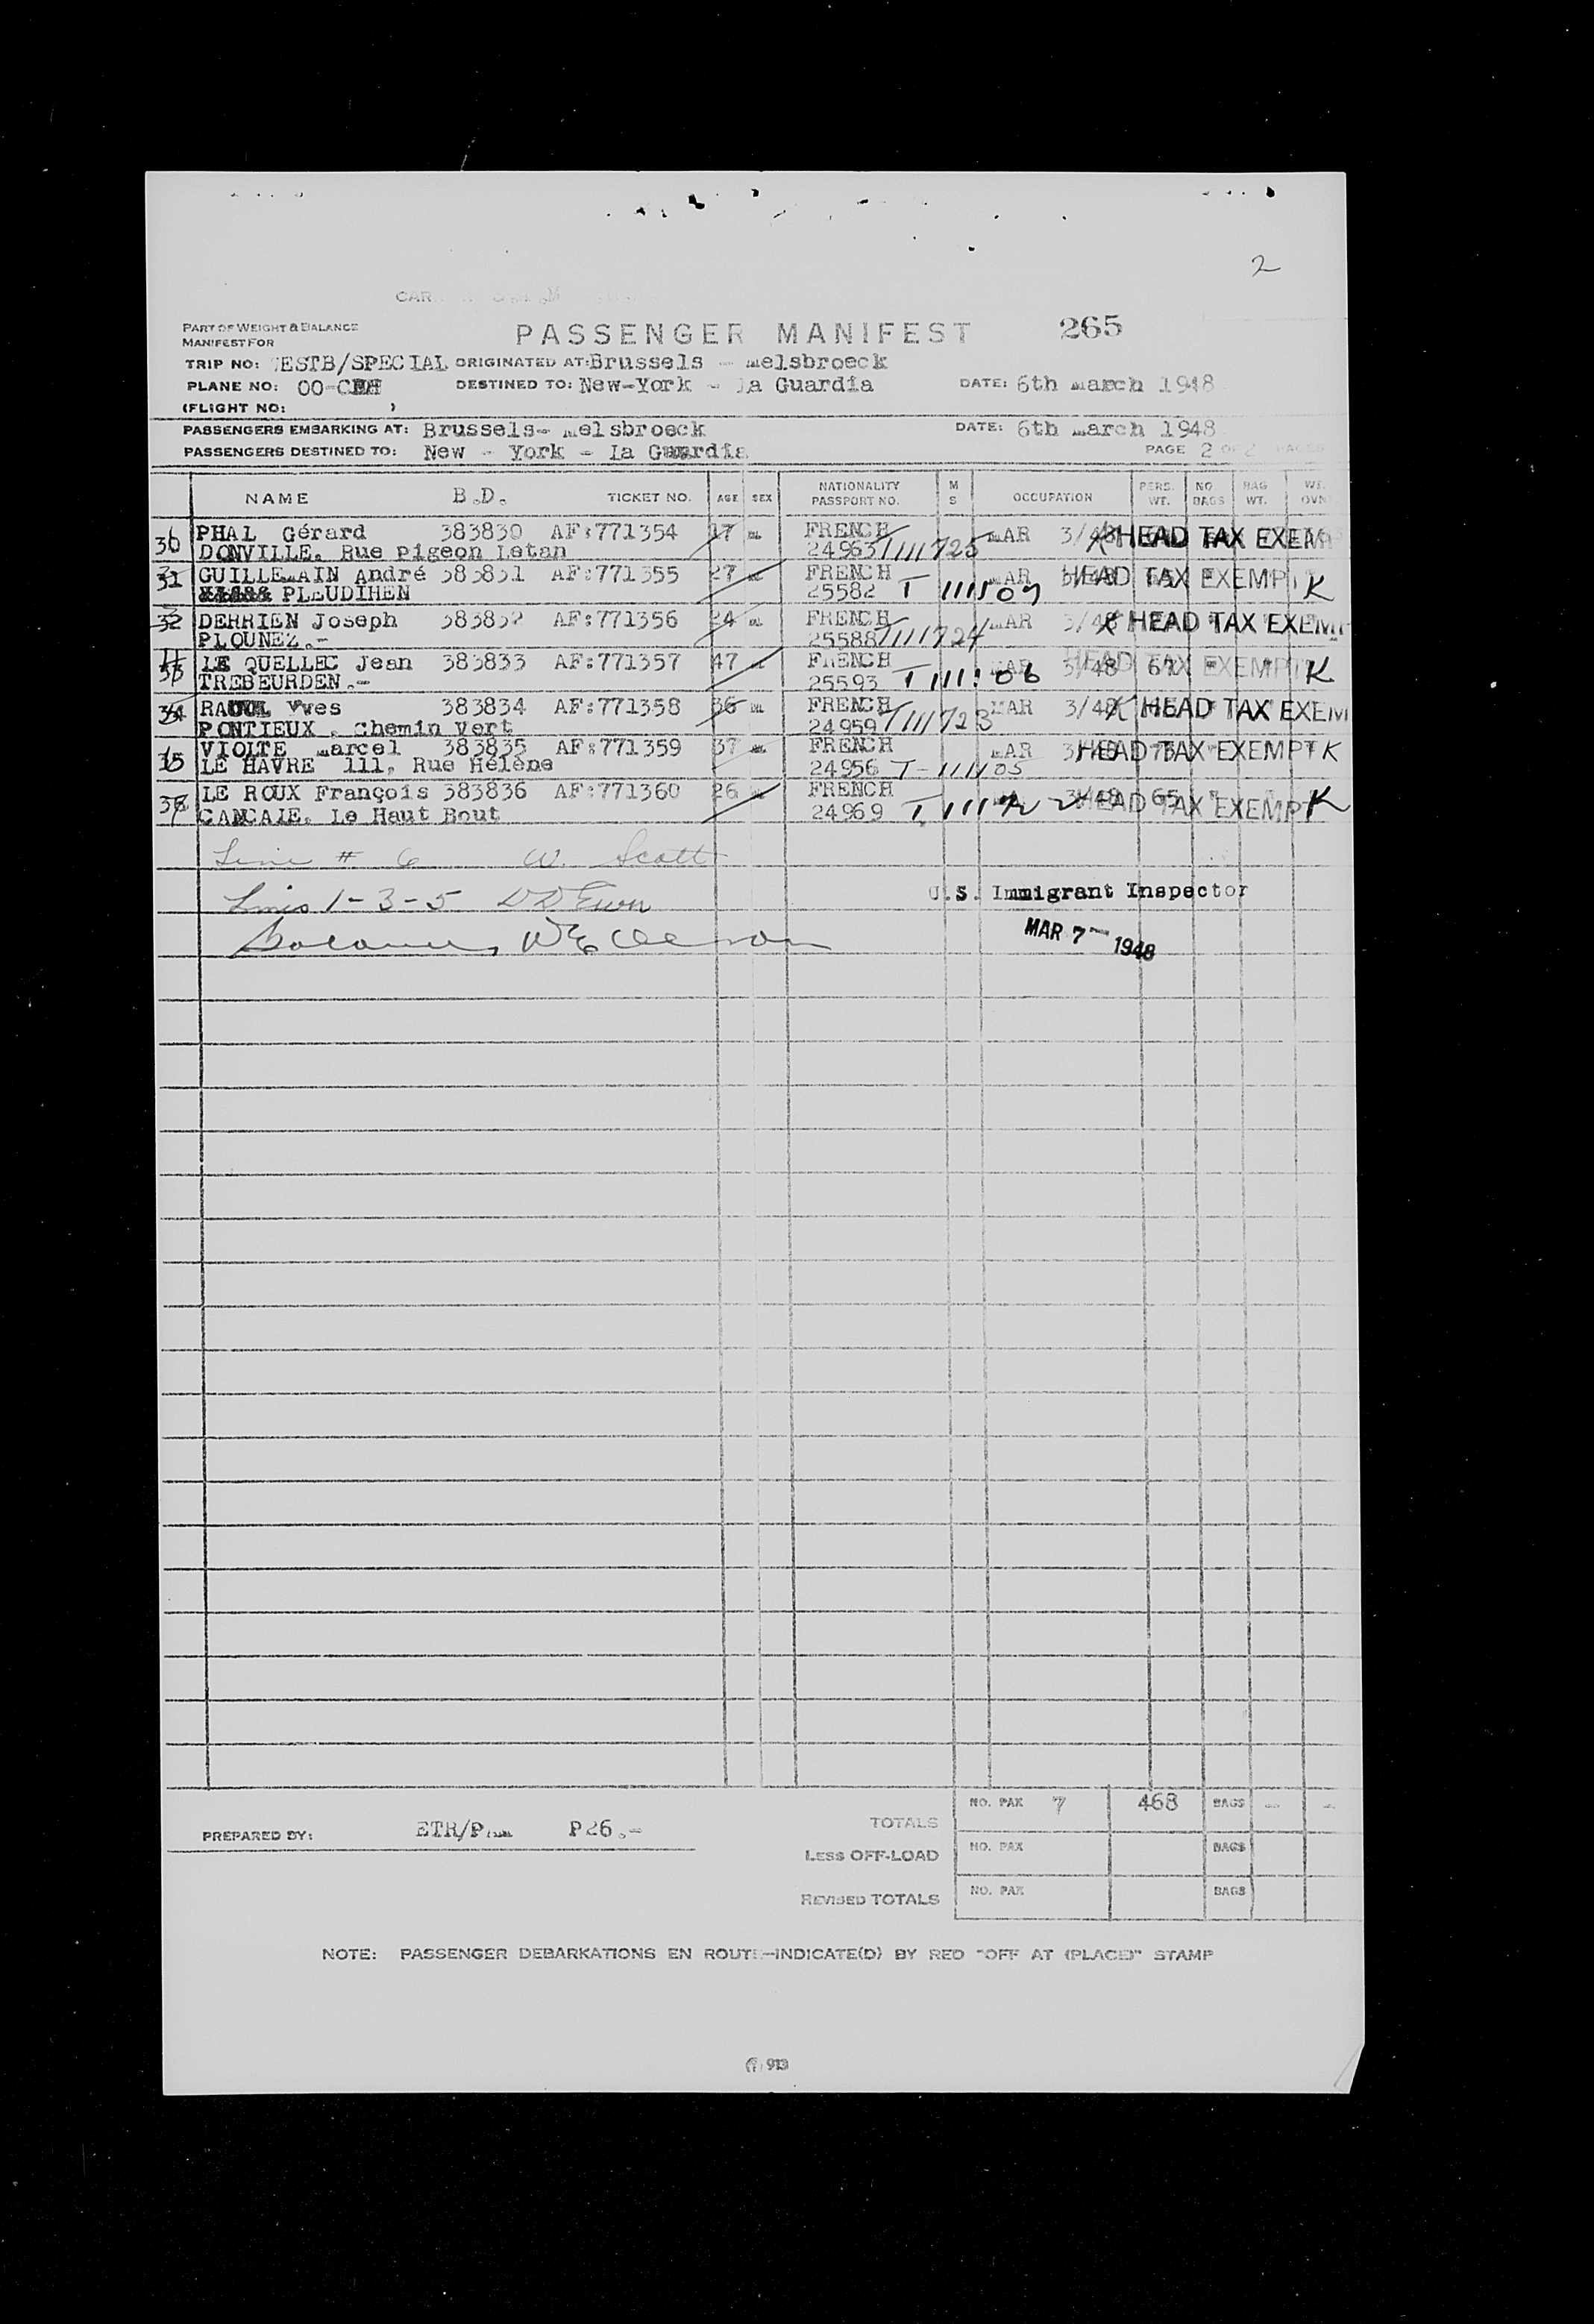 2
PART OF WEIGHT & BALANCE
MANIFEST FOR
PASSENGER MANIFEST 265
TRIP NO: WESTB/SPECIAL ORIGINATED AT: Brussels - Melsbroeck
PLANE NO: OO- DESTINED TO: New-York - la Guardia DATE: 6th March 1948
(FLIGHT NO: )
PASSENGERS EMBARKING AT: Brussels- Melsbroeck DATE: 6th March 1948
PASSENGERS DESTINED TO: New - York - la Guardia PAGE 2 OF 2 PAGES
NAME B.D. TICKET NO. AGE SEX NATIONALITY PASSPORT NO. M S OCCUPATION PERS. WT. NO. BAGS BAG WT. WT. OVN
30 PHAL Gérard 383830 AF:771354 17 M FRENCH MAR 3/48 HEAD TAX EXEM
DONVILLE. Rue Pigeon Letan 24963 T1111725
31 GUILLEMAIN André 383831 AF:771355 27 M FRENCH MAR HEAD TAX EXEMPT K
PLEUDIHEN 25582 T 1111509
32 DERRIEN Joseph 383832 AF:771356 24 M FRENCH MAR 3/48 HEAD TAX EXEM
PLOUNEZ.- 25588 T1111724
33 LE QUELLEC Jean 383833 AF:771357 47 M FRENCH MAR 3/48 HEAD TAX EXEMPT K
TREBEURDEN.- 25593
34 Yves 383834 AF:771358 36 M FRENCH MAR 3/48 HEAD TAX EXEM
PONTIEUX . Chemin Vert 24959
VIOLTE Marcel 383835 AF:771359 37 M FRENCH MAR 3/48 HEAD TAX EXEMPT K
LE HAVRE 111, Rue Hélène 24956
LE ROUX François 383836 AF:771360 26 M FRENCH 3/48 65 HEAD TAX EXEMPT K
CANCALE. Le Haut Bout 24969
Line # 6 W. Scott
Lines 1-3-5
U.S. Immigrant Inspector
MAR 7 1948
TOTALS NO. PAX 7 468 BAGS - -
PREPARED BY: P26.-
LESS OFF-LOAD NO. PAX BAGS
REVISED TOTALS NO. PAX BAGS
NOTE: PASSENGER DEBARKATIONS EN ROUTE-INDICATE(D) BY RED "OFF AT (PLACE)" STAMP
913